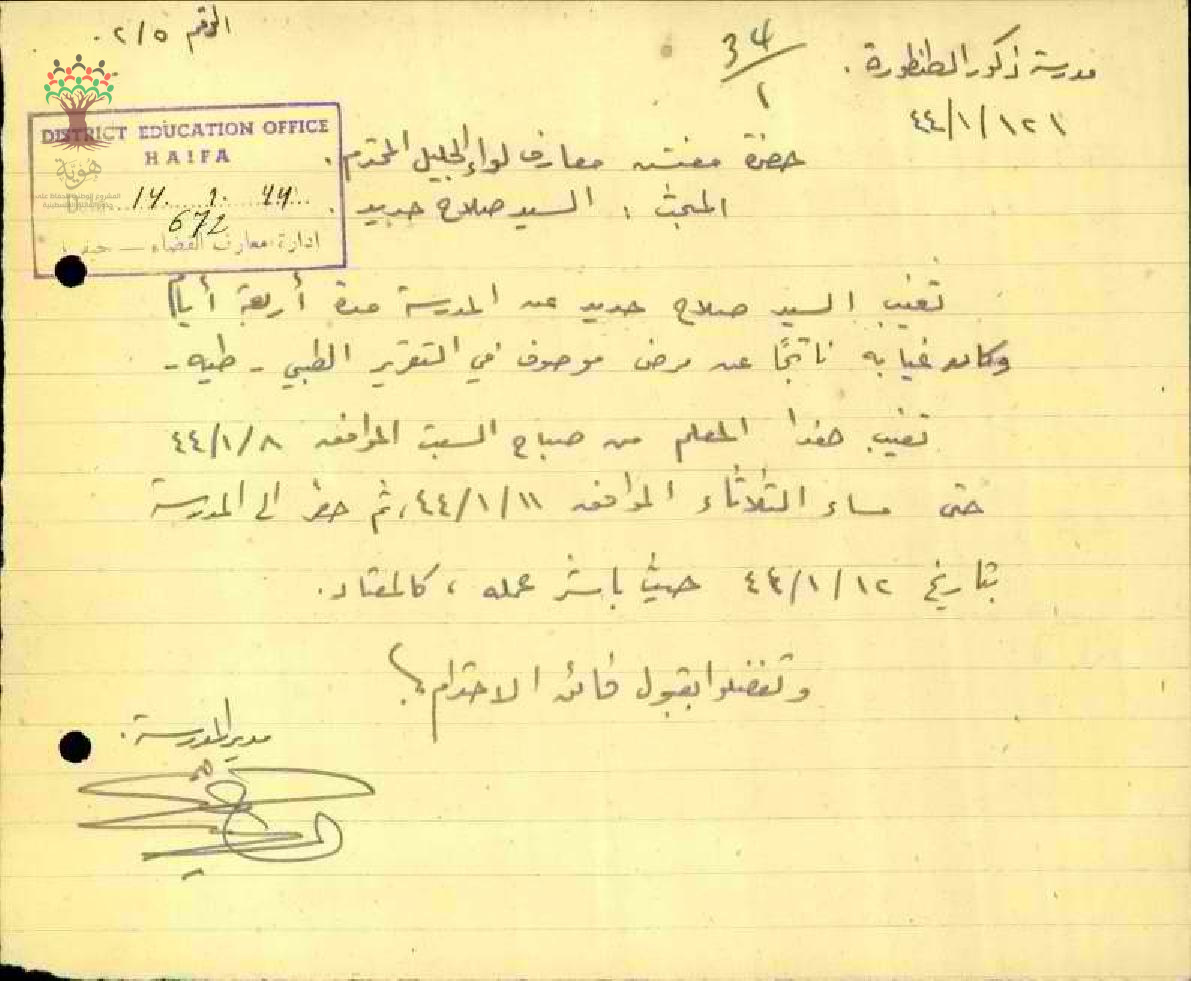 الرقم ٢/٥.
34/1
مدرسة ذكور الطنطورة.
٤٤/١/١٢
DISTRICT EDUCATION OFFICE
HAIFA
هوية
14. 1. 44
672
ادارة معارف القضاء — حيفا
حضرة مفتش معارف لواء الجليل المحترم.
المبحث : السيد صلاح حديد.
تغيب السيد صلاح حديد عن المدرسة مدة أربعة أيام
وكان غيابه ناتجًا عن مرض موصوف في التقرير الطبي - طيه -
تغيب هذا المعلم من صباح السبت الموافق ٤٤/١/٨
حتى مساء الثلاثاء الموافق ٤٤/١/١١، ثم حضر الى المدرسة
بتاريخ ٤٤/١/١٢ حيث باشر عمله، كالمعتاد.
وتفضلوا بقبول فائق الاحترام
مدير المدرسة.